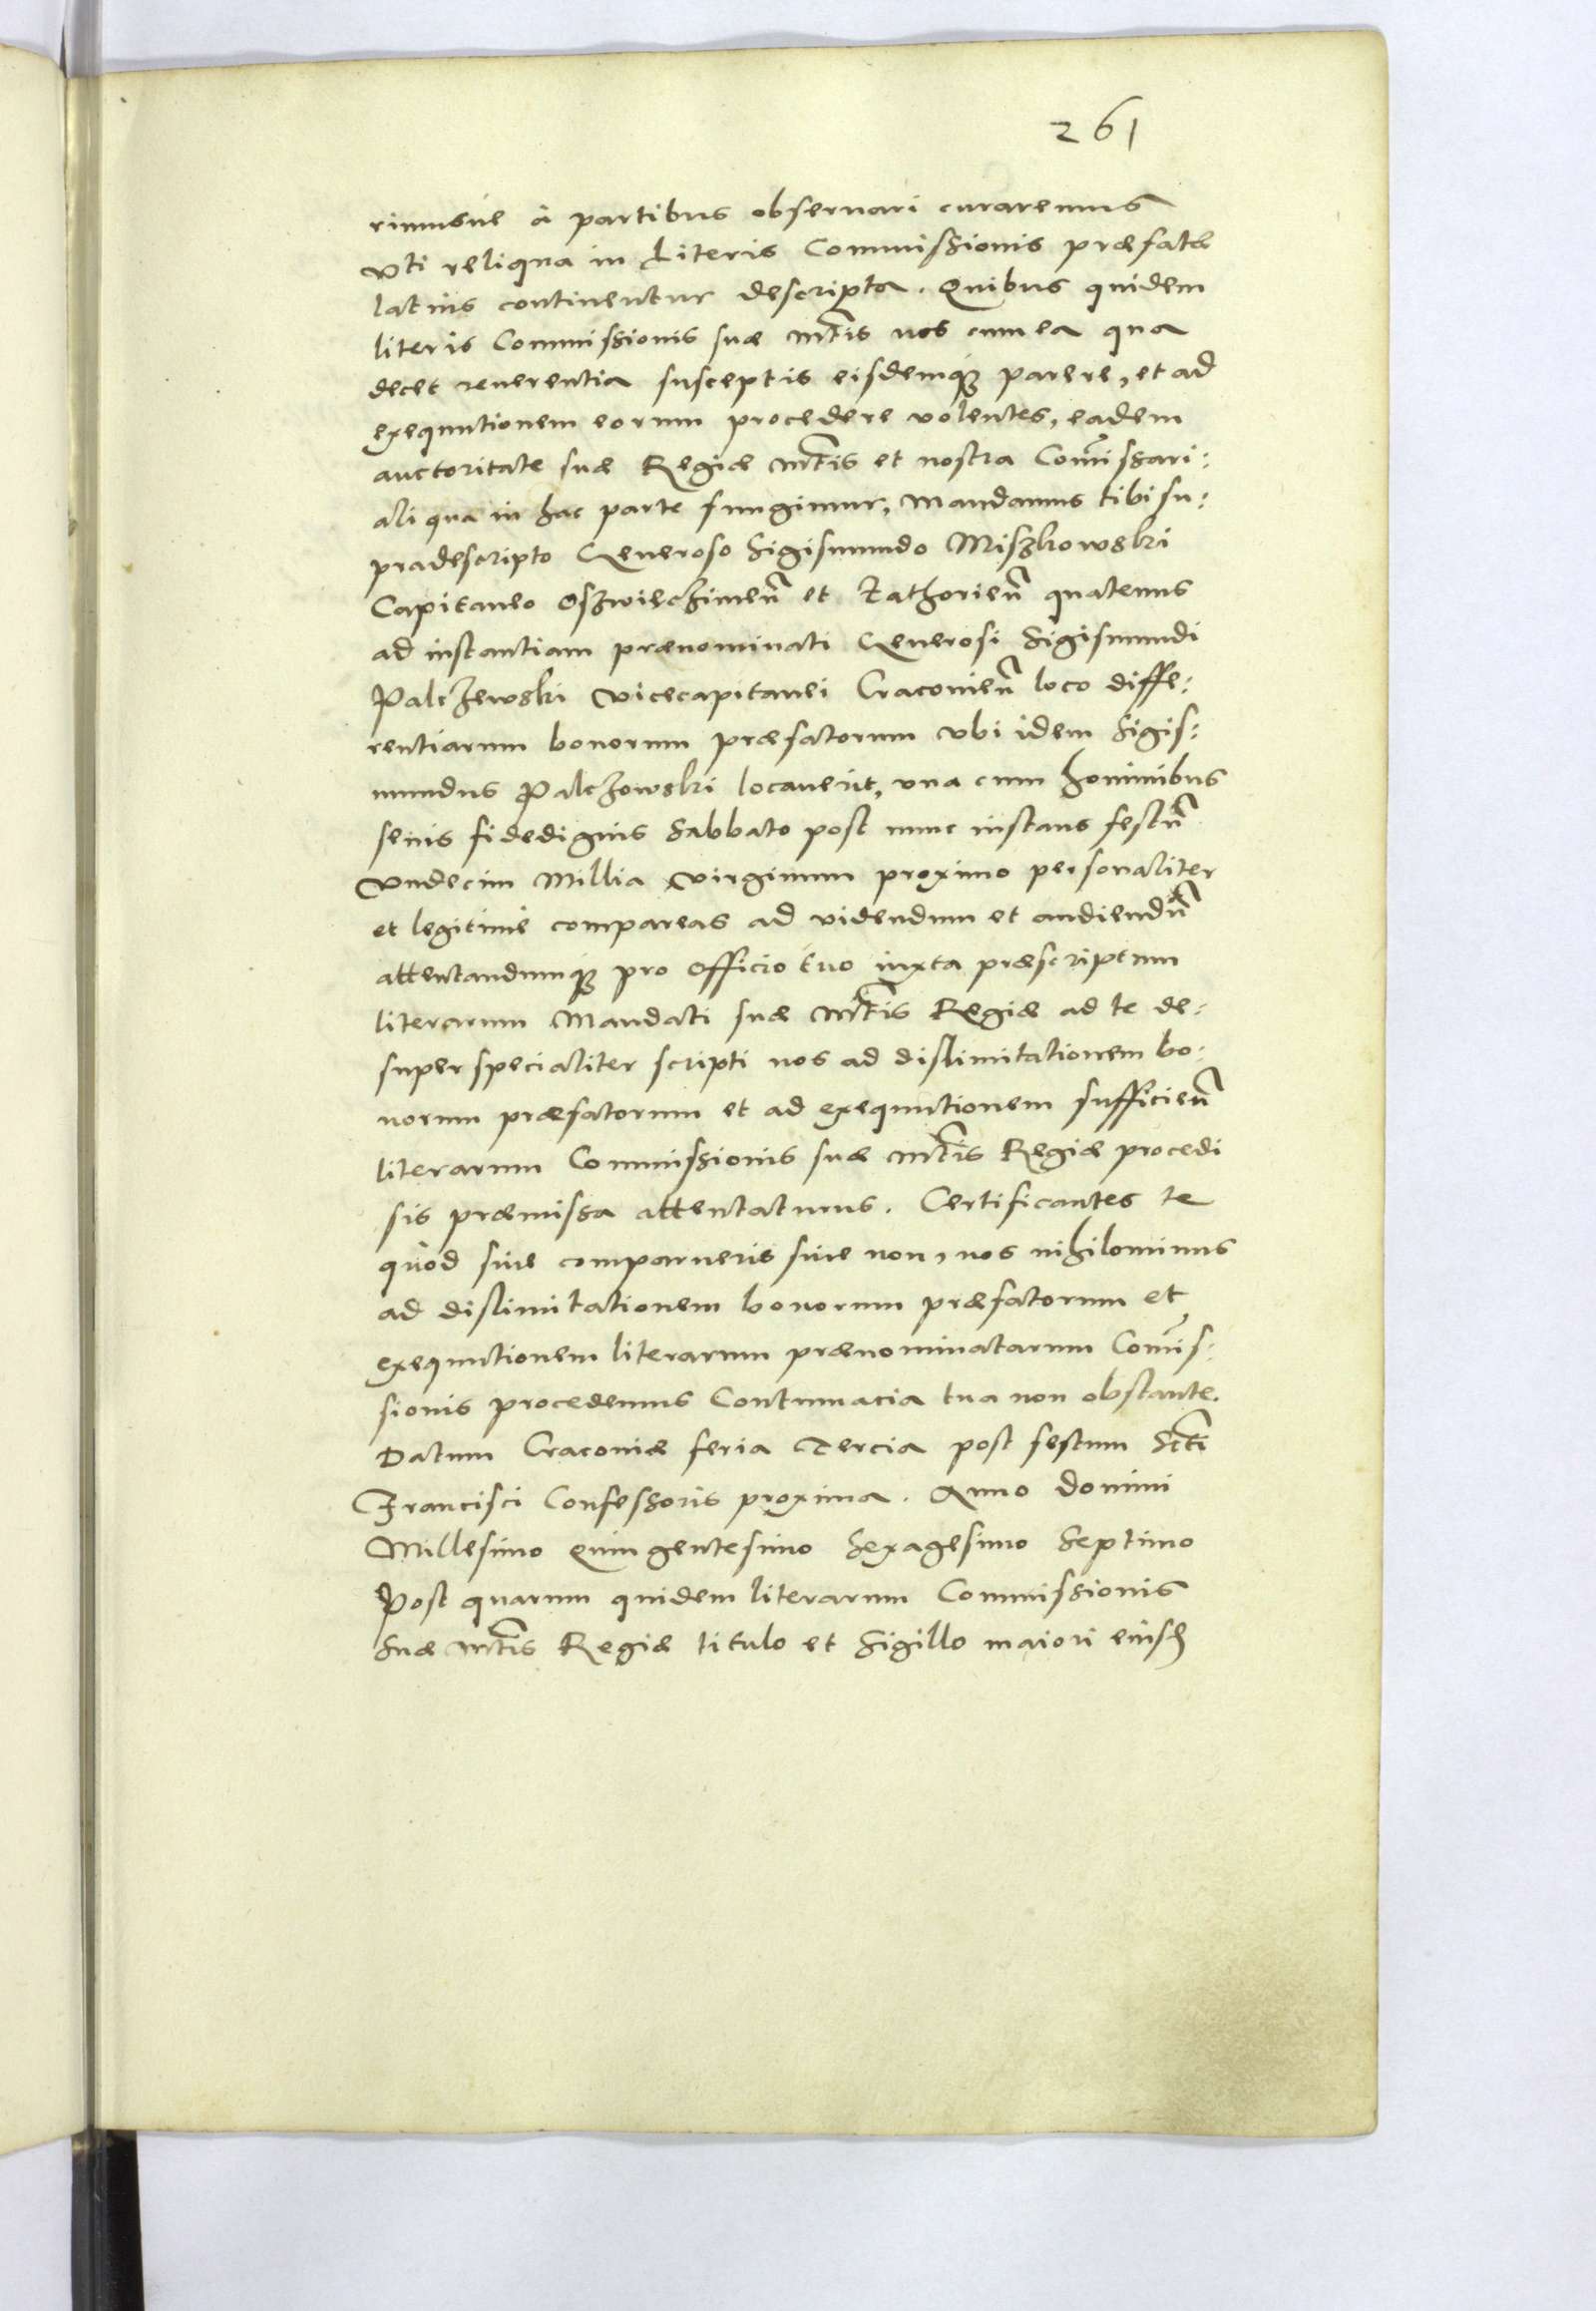 261
rimusue à partibus obseruari curaremus
Vti reliqua in Literis Commissionis præfatæ
latius continentur descripta. Quibus quidem
literis Commissionis suæ Mtis nos cum ea qua
decet reuerentia susceptis eisdemq3 parere, et ad
exequutionem eorum procedere volentes, eadem
auctoritate suæ Regiæ Mtis et nostra Com̃issari:
ali qua in hac parte fungimur, Mandamus tibi su:
pradescripto Generoso Sigismundo Miszkowski
Capitaneo Oszwieczimeñ et Zathorieñ quatenus
ad instantiam prænominati Generosi Sigismundi
Palczewski Vicecapitanei Cracouieñ loco diffe:
rentiarum bonorum præfatorum vbi idem Sigis:
mundus Palczowski locauerit, vna cum hominibus
senis fidedignis Sabbato post nunc instans festũ
Vndecim Millia Virginum proximo personaliter
et legitime compareas ad videndum et audiendũ
attentandumq3 pro Officio tuo iuxta præscriptum
literarum Mandati suæ Mtis Regiæ ad te de:
super specialiter scripti nos ad dislimitationem bo:
norum præfatorum et ad exequutionem sufficieñ
literarum Commissionis suæ Mtis Regiæ procedi
sis præmissa attentaturus. Certificantes te
quòd siue comparueris siue non, nos nihilominus
ad dislimitationem bonorum præfatorum et
exequutionem literarum prænominatarum Com̃is:
sionis procedemus Contumacia tua non obstante.
Datum Cracouiæ feria Tercia post festum Scti
Francisci Confessoris proxima. Anno Domini
Millesimo Quingentesimo Sexagesimo Septimo
Post quarum quidem literarum Commissionis
Suæ Mtis Regiæ titulo et Sigillo maiori eiusd